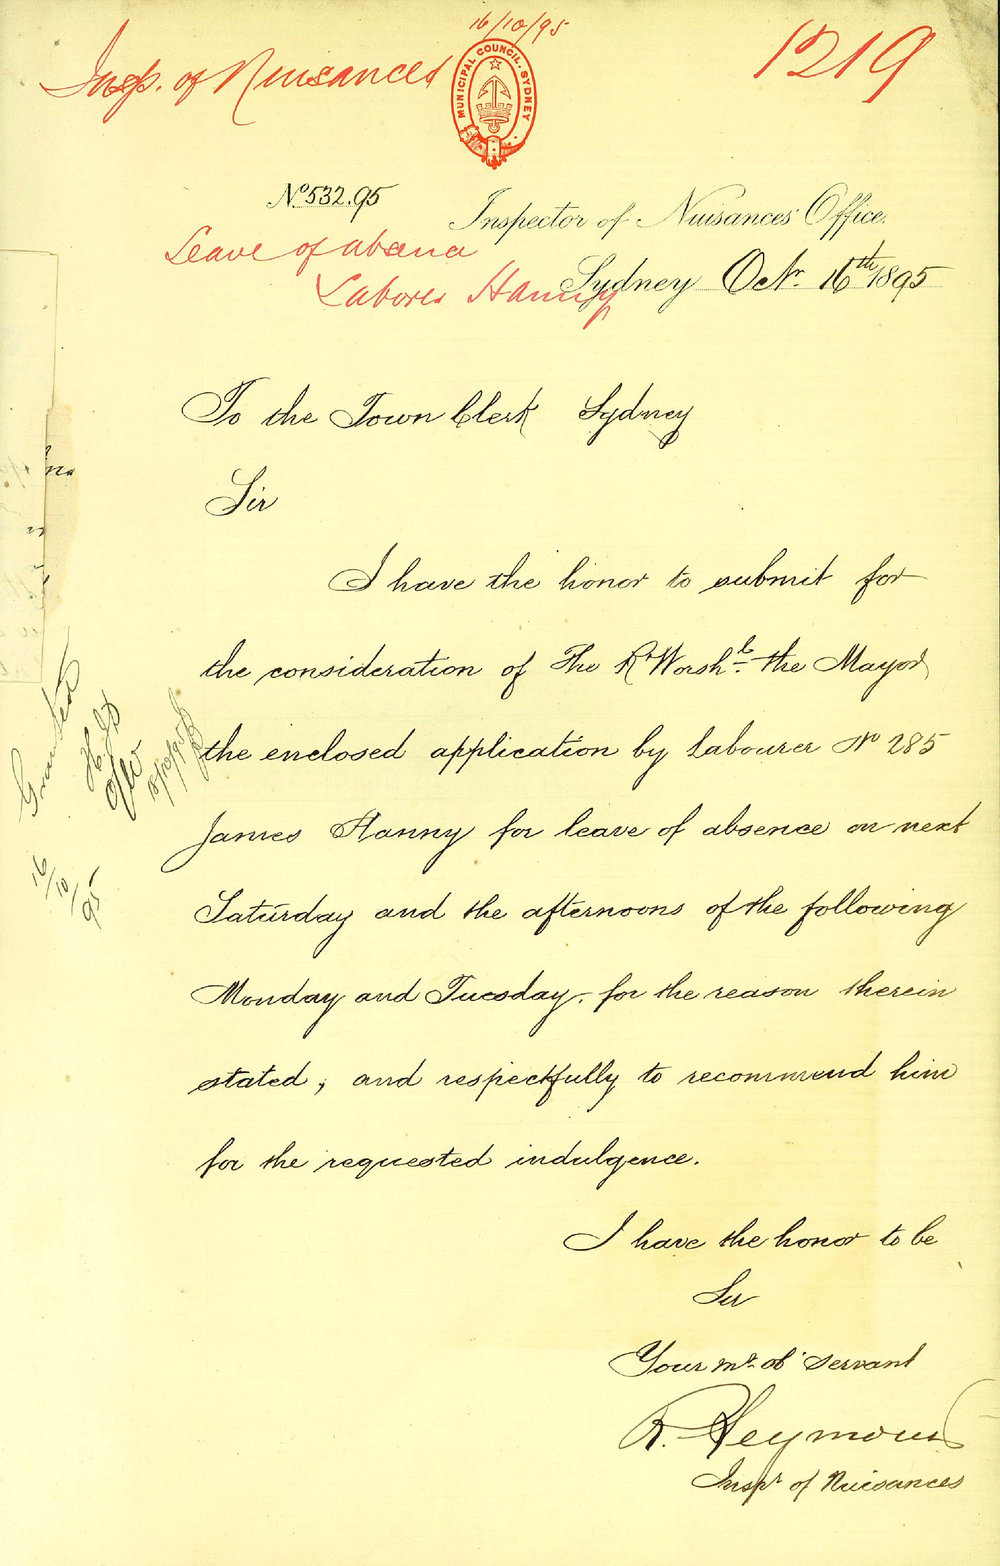 16/10/95
Insp. of Nuisances
1219
MUNICIPAL COUNCIL. SYDNEY
No 532.95
Inspector of Nuisances' Office.
Leave of absence
Sydney Octr. 16th 1895
Laborer Hanny
To the Town Clerk Sydney
Sir
I have the honor to submit for
the consideration of The Rt Worshl. the Mayor
the enclosed application by Labourer No 285
James Hanny for leave of absence on next
Saturday and the afternoons of the following
Monday and Tuesday. for the reason therein
stated, and respectfully to recommend him
for the requested indulgence.
I have the honor to be
Sir
Your mt. ob' servant
R. Seymour
Inspr of Nuisances
Granted
16/10/95